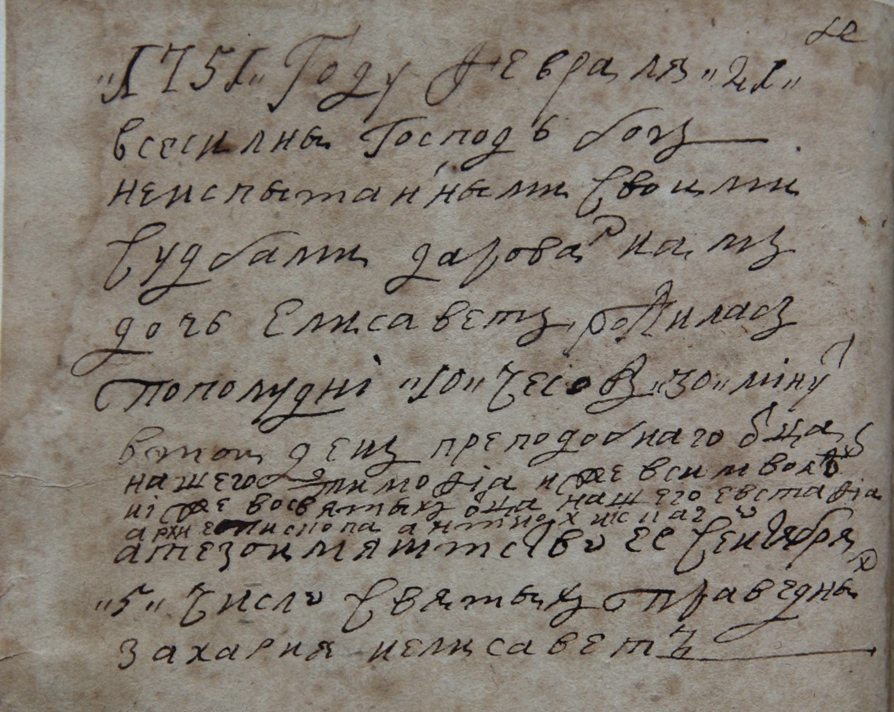 „1751„ Году Февраля „21„
всесилны Господь богъ
неиспытанными своими
судбами даровал намъ
дочь Елисаветъ, родиласъ
пополудні „10„ часов „30„ мінут
втои денъ преподобнаго отца
нашего тимофіа иже всимволѣ
иіже восвятыхъ отца нашего евстафіа
архиепископа антиохиіскаго
атезоимянтство ее сентября
„5„ число святыхъ праведных
захария иелисаветъ